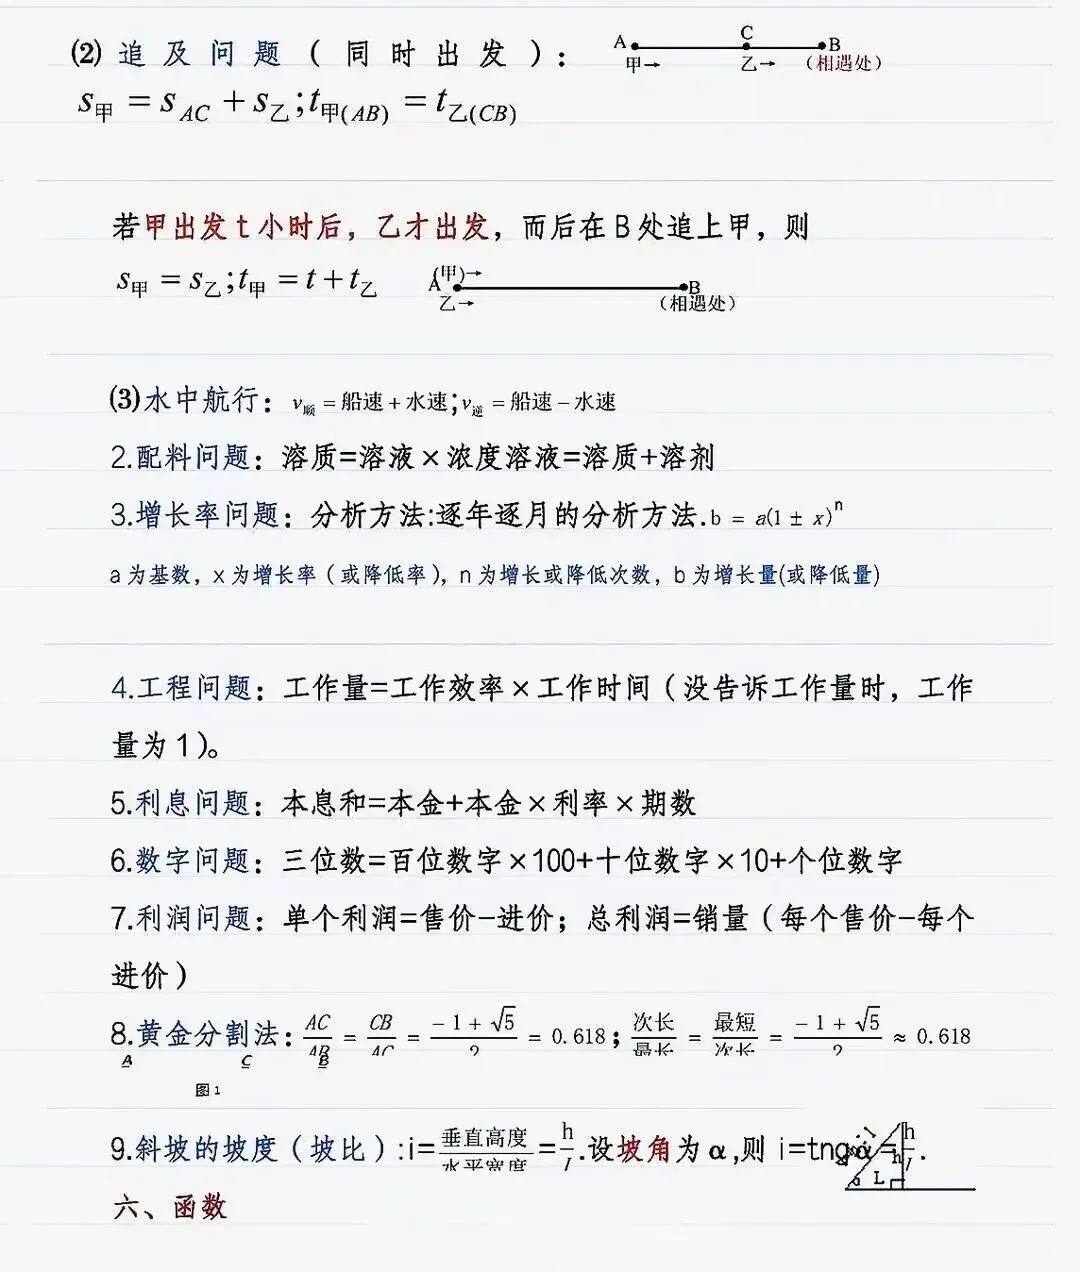 (2) 追及问题(同时出发): A C B
甲→ 乙→ (相遇处)
s甲 = s AC + s乙;t甲(AB) = t乙(CB)
若甲出发t小时后，乙才出发，而后在B处追上甲，则
s甲 = s乙;t甲 = t + t乙 (甲)→ A B
乙→ (相遇处)
(3)水中航行：v顺 = 船速 + 水速;v逆 = 船速 − 水速
2.配料问题：溶质=溶液×浓度溶液=溶质+溶剂
3.增长率问题：分析方法:逐年逐月的分析方法.b = a(1 ± x)^n
a为基数，x为增长率（或降低率），n为增长或降低次数，b为增长量(或降低量)
4.工程问题：工作量=工作效率×工作时间（没告诉工作量时，工作
量为1）。
5.利息问题：本息和=本金+本金×利率×期数
6.数字问题：三位数=百位数字×100+十位数字×10+个位数字
7.利润问题：单个利润=售价-进价；总利润=销量（每个售价-每个
进价）
8.黄金分割法：AC/AB = CB/AC = (−1 + √5)/2 = 0.618；次长/最长 = 最短/次长 = (−1 + √5)/2 ≈ 0.618
A C B
图1
9.斜坡的坡度（坡比）:i=垂直高度/水平宽度=h/l.设坡角为α,则 i=tngα=h/l.
h
α L
六、函数